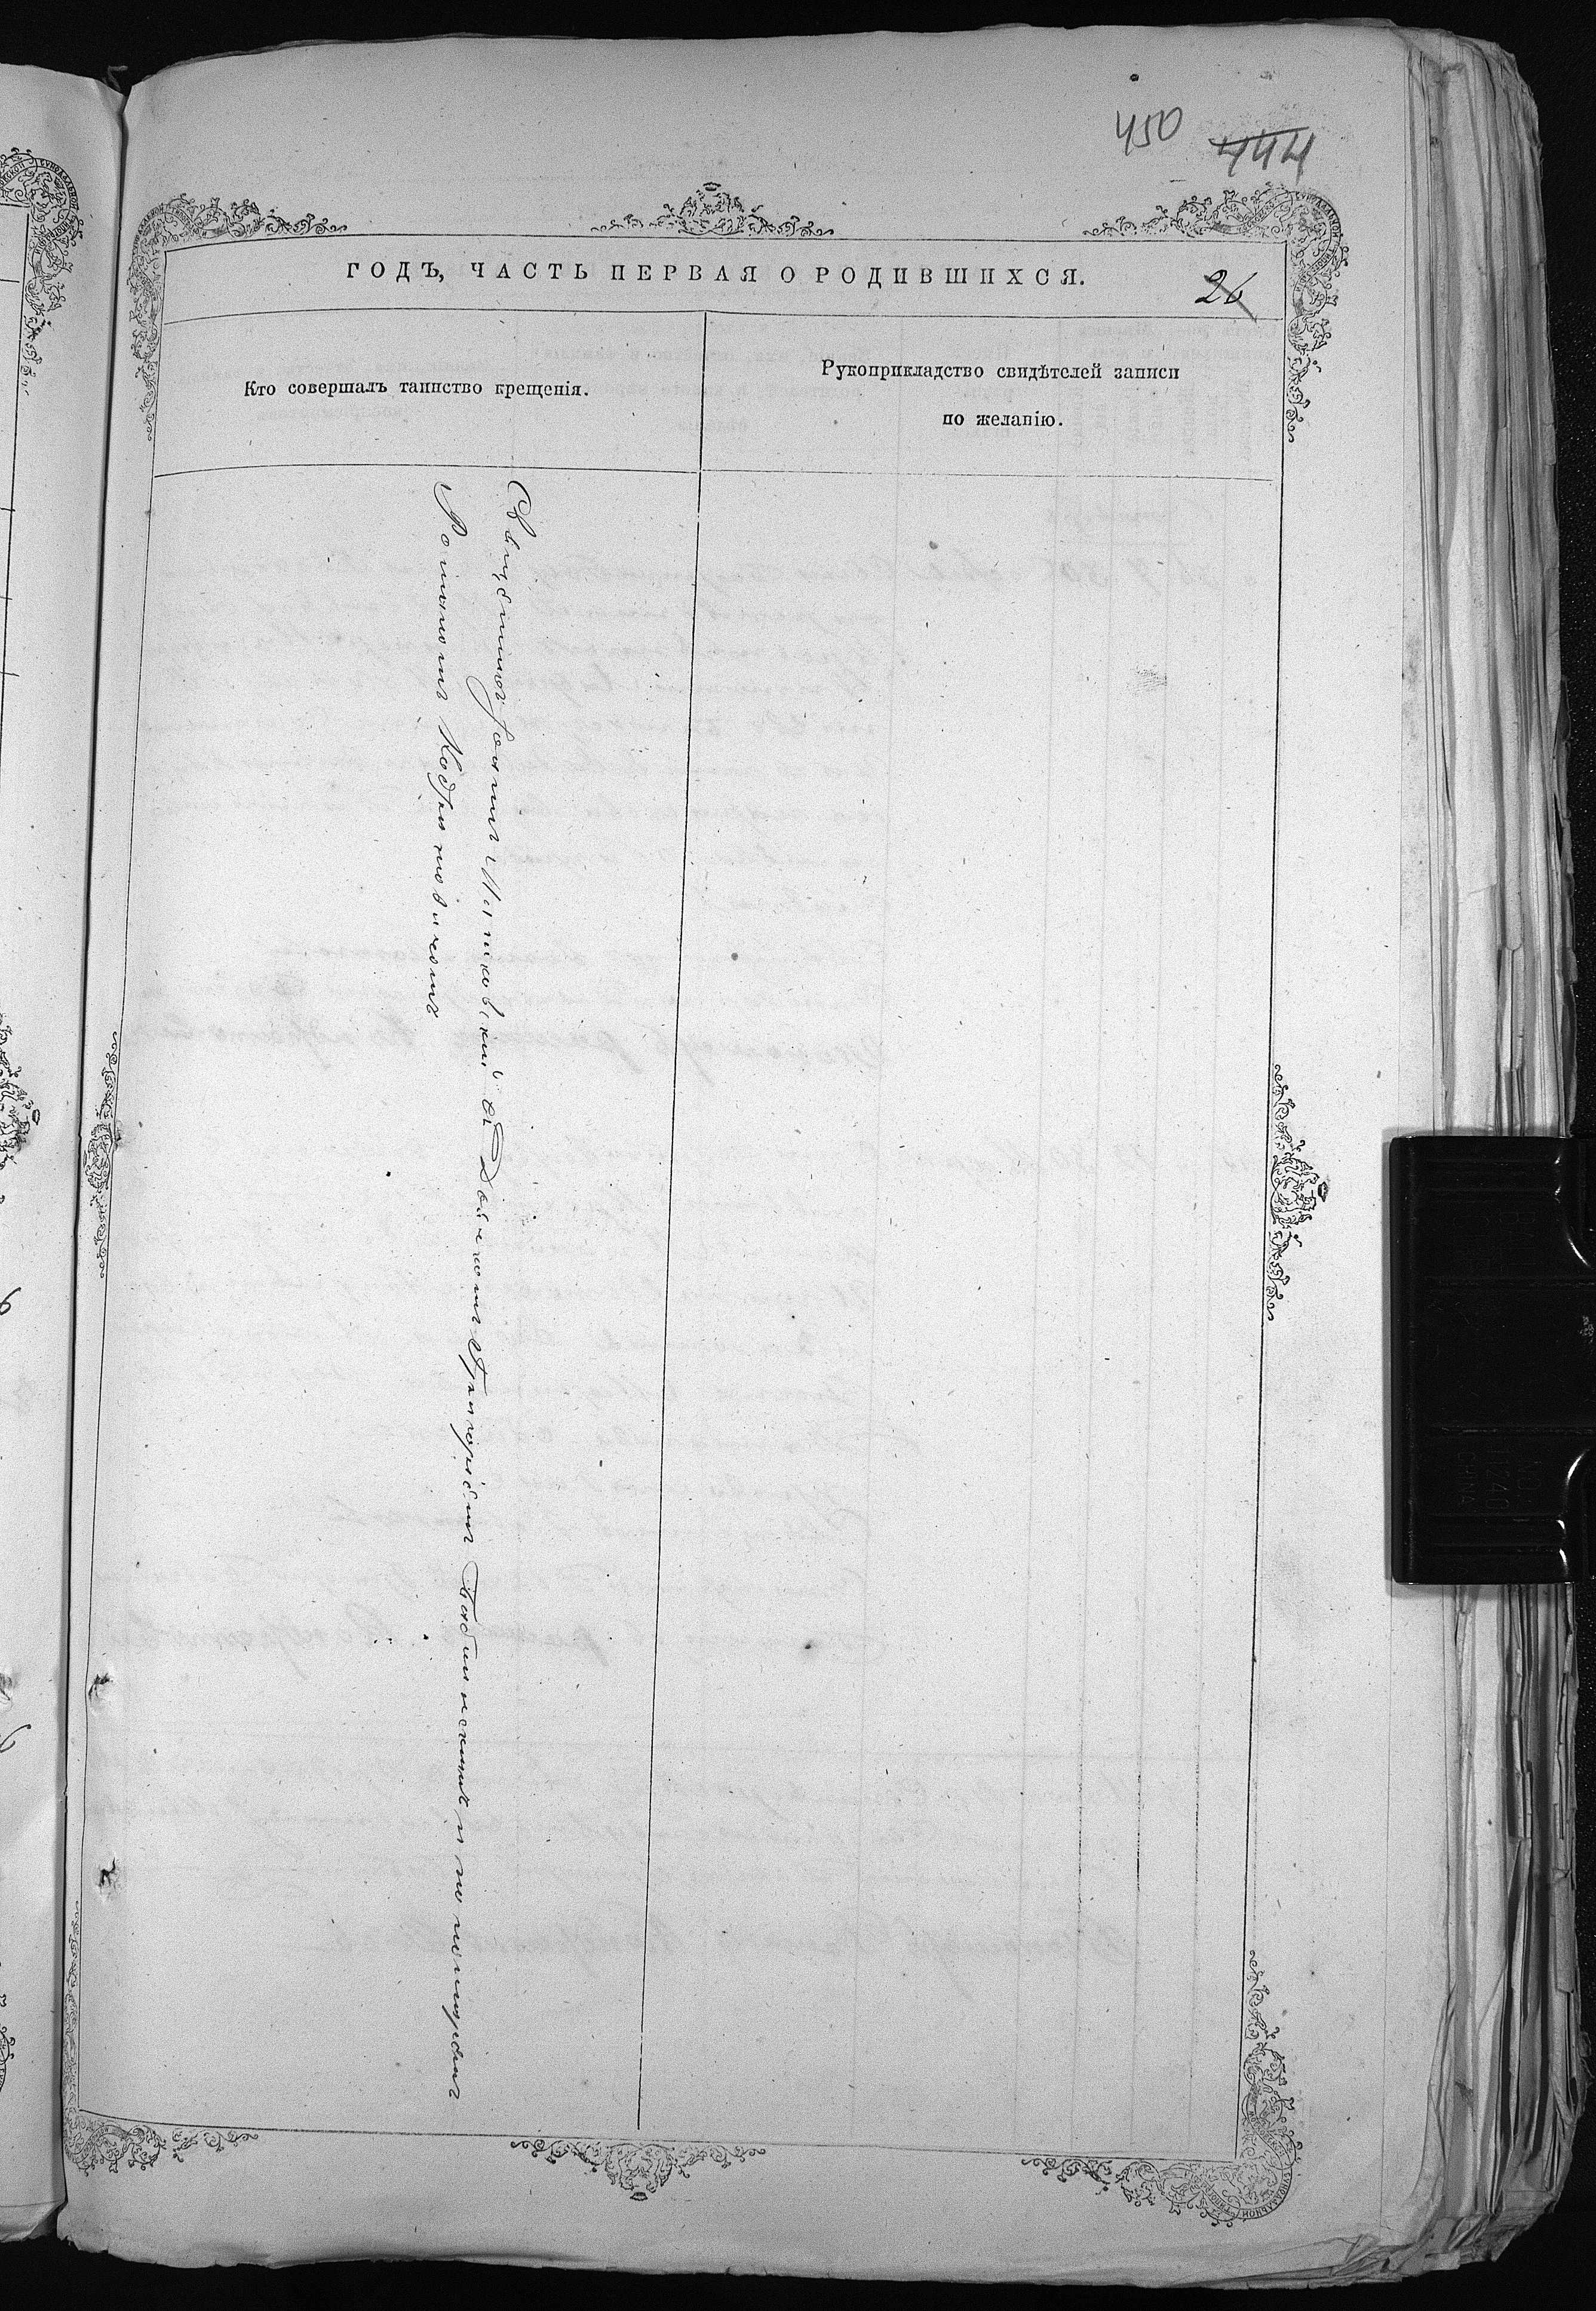 450 444
ГОДЪ, ЧАСТЬ ПЕРВАЯ О РОДИВШИХСЯ.
26
Кто совершалъ таинство крещенія.
Рукоприкладство свидѣтелей записи
по желанію.
Священникъ Іоаннъ съ Дьячкомъ Григоріемъ Бабинскимъ и пономаремъ
Романомъ